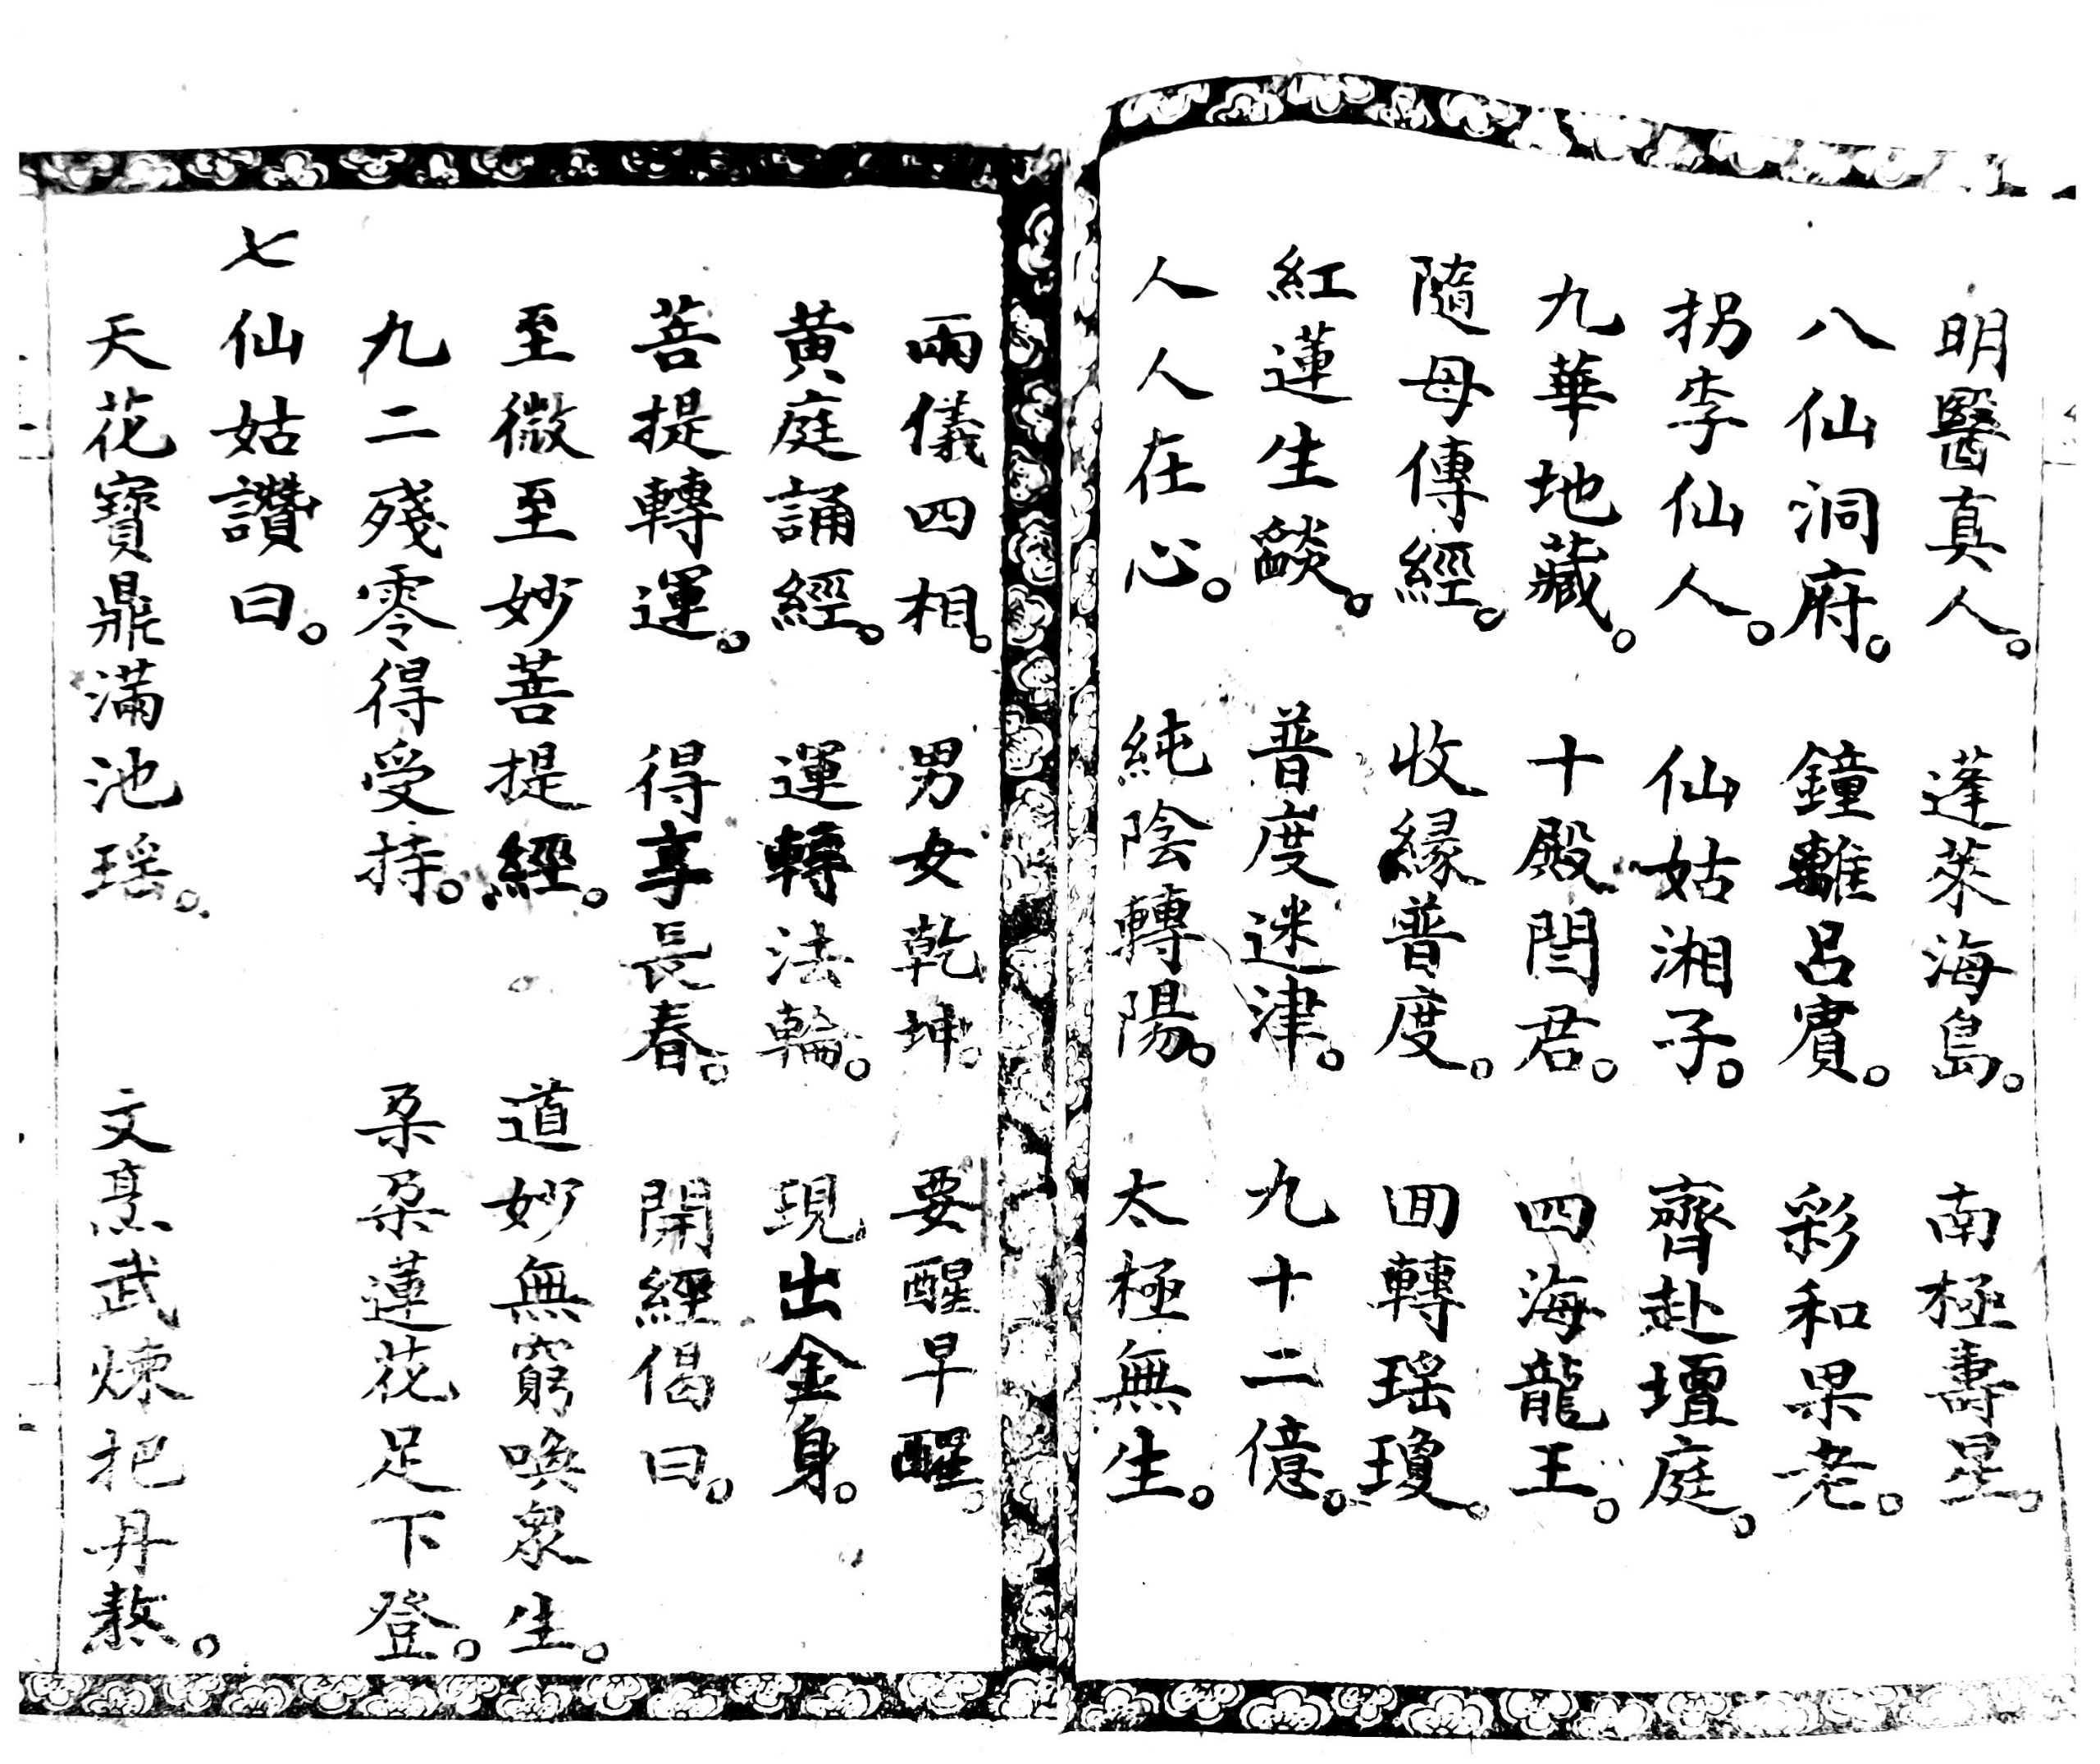 明醫真人。 蓬萊海島。 南極壽星。
八仙洞府。 鐘離呂賓。 彩和果老。
拐李仙人。 仙姑湘子。 齊赴壇庭。
九華地藏。 十殿閆君。 四海龍王。
隨母傳經。 收緣普度。 囬轉瑶瓊。
紅蓮生燄。 普度迷津。 九十二億。
人人在心。 純陰轉陽。 太極無生。
兩儀四相。 男女乾坤。 要醒早醒。
黃庭誦經。 運轉法輪。 現出金身。
菩提轉運。 得享長春。 開經偈曰。
至微至妙菩提經。 道妙無窮喚衆生。
九二殘零得受持。 朶朶蓮花足下登。
七仙姑讚曰。
天花寶鼎滿池瑶。 文烹武煉把丹熬。